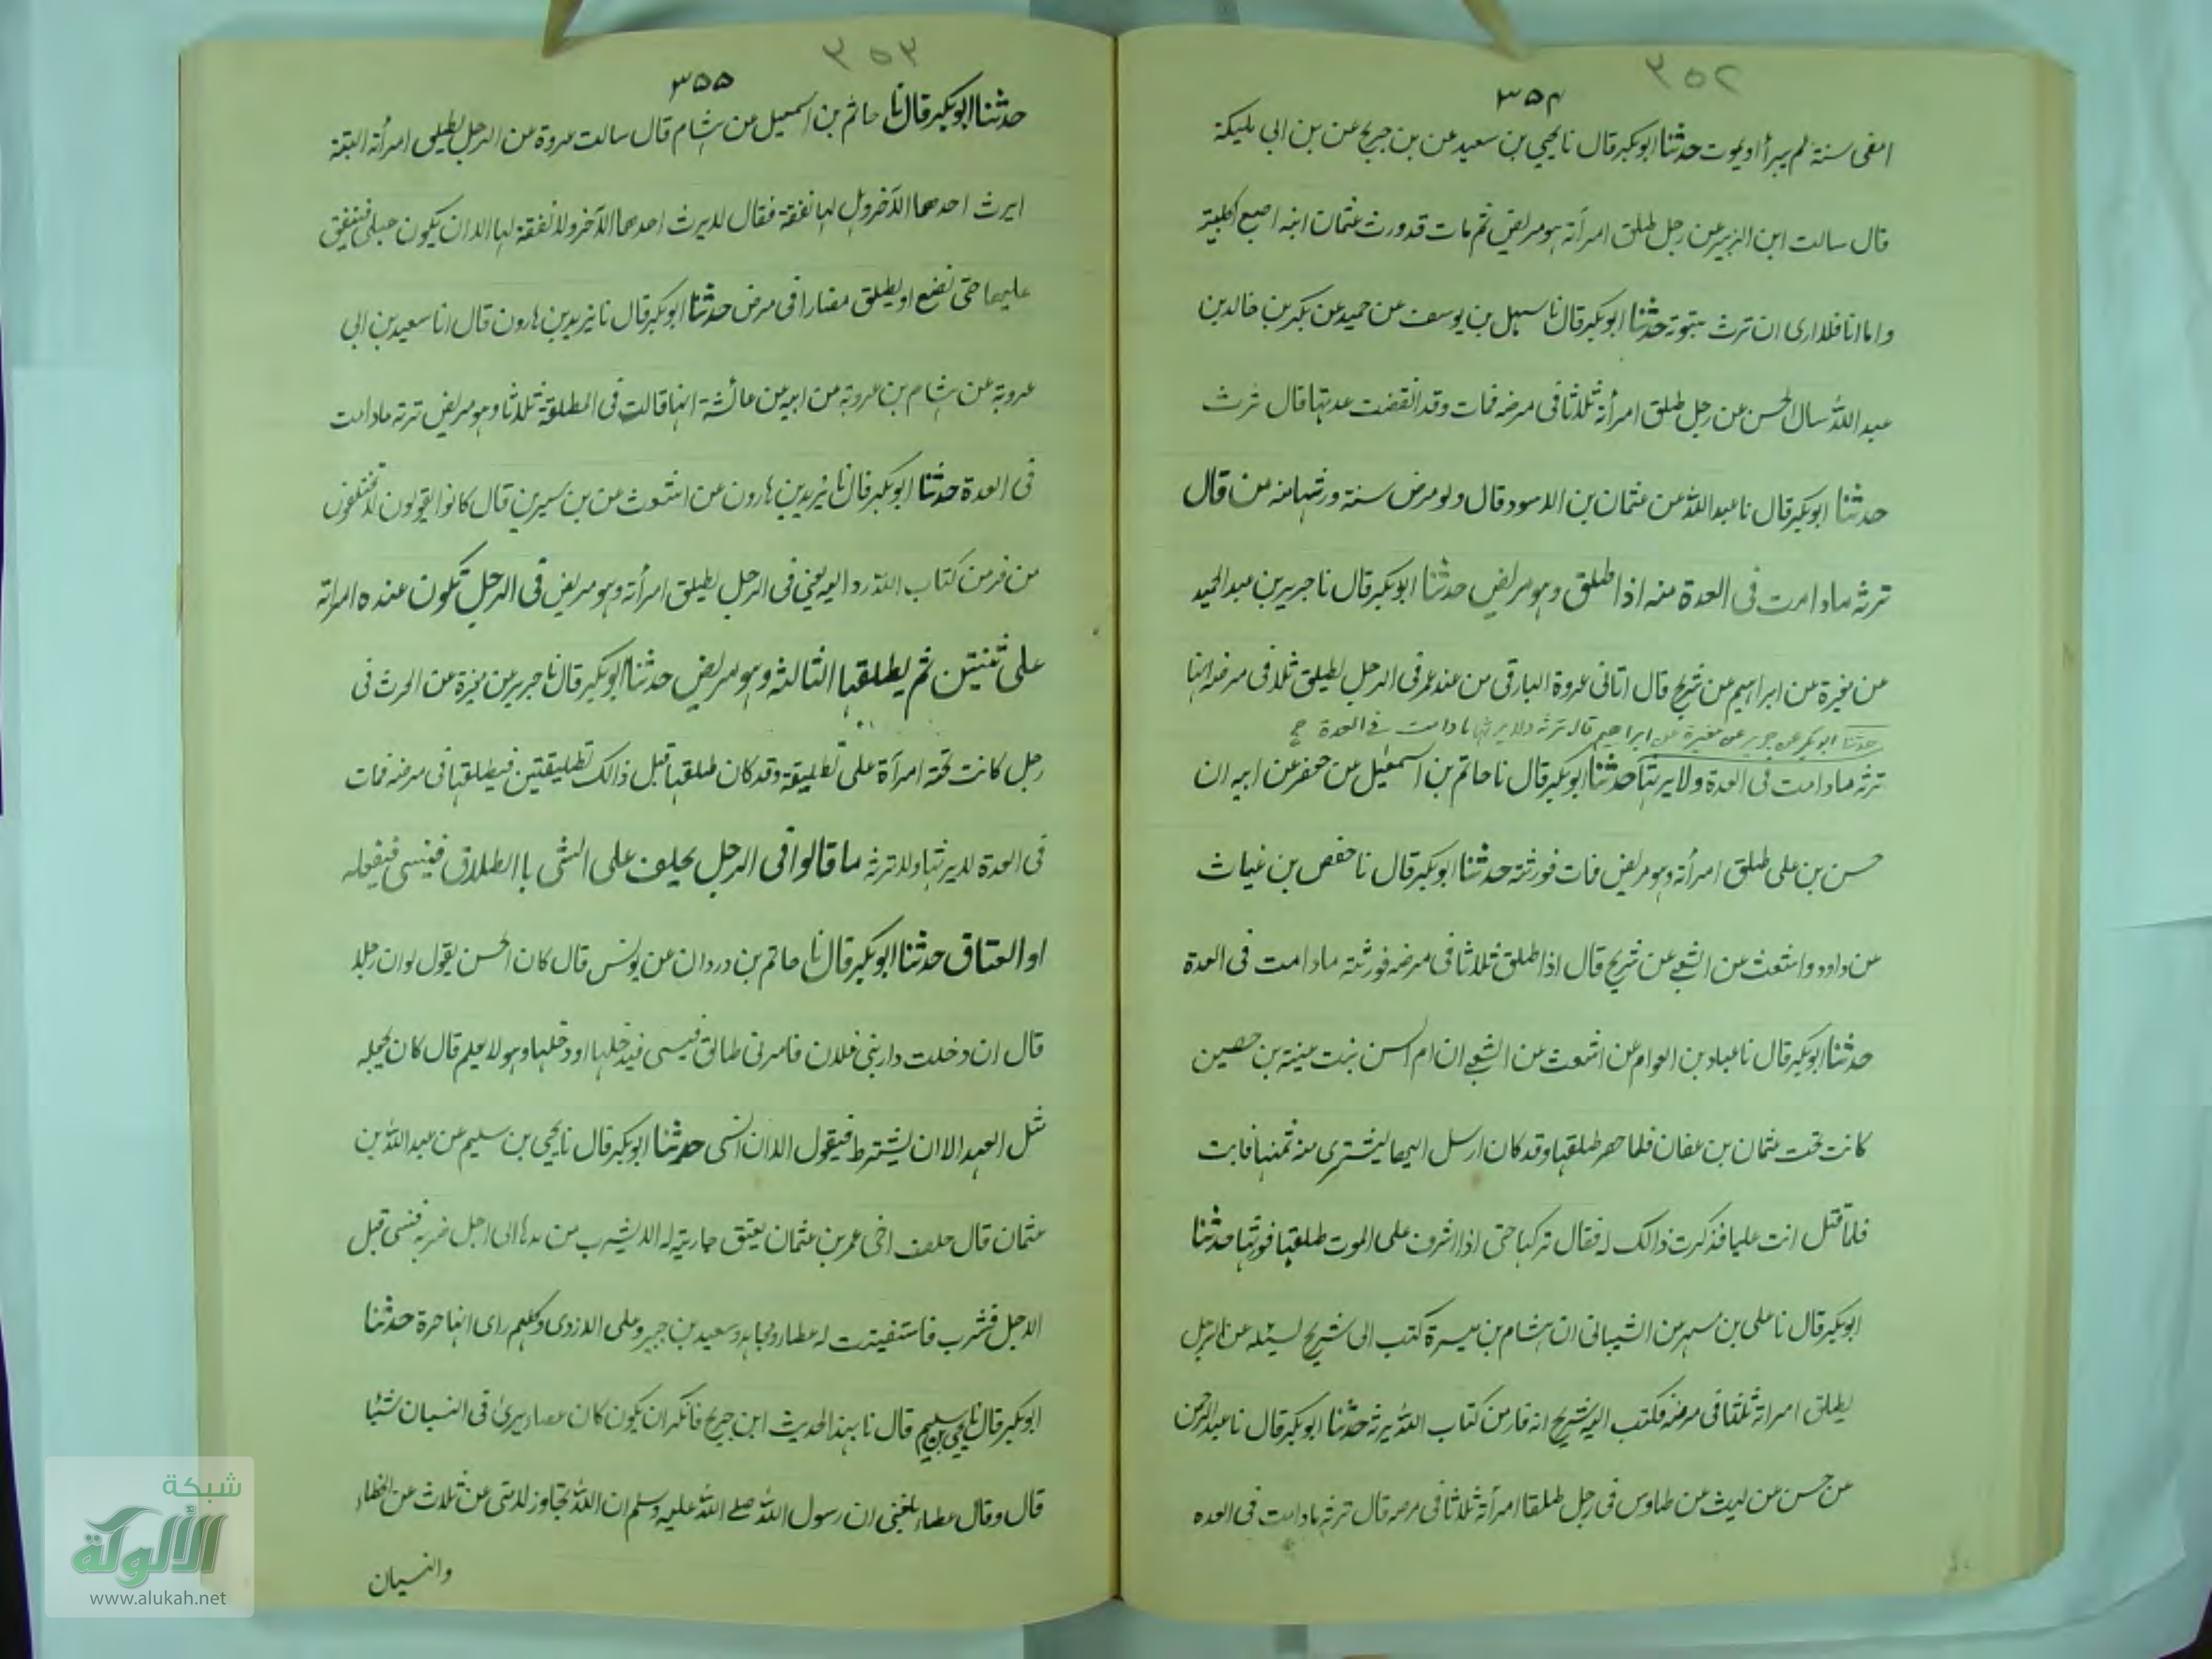 ٣٥٢
٣٥٤
امضى سنة لم يبرأ او يموت حدثنا ابوبكر قال نا يحيى بن سعيد عن بن جريج عن بن ابى مليكة
قال سالت ابن الزبير عن رجل طلق امرأته وهو مريض ثم مات قد ورث عثمان ابنه اصبع الكلبية
واما انا فلا ارى ان ترث مبتوتة حدثنا ابوبكر قال نا سهل بن يوسف عن حميد عن بكر بن خالد بن
عبد الله سال الحسن عن رجل طلق امرأته ثلاثا فى مرضه فمات وقد انقضت عدتها قال ترث
حدثنا ابوبكر قال نا عبد الله عن عثمان بن الاسود قال ولو مرض سنة ورثتها منه من قال
ترثه ما دامت فى العدة منه اذا طلق وهو مريض حدثنا ابوبكر قال نا جرير بن عبد الحميد
عن مغيرة عن ابراهيم عن شريح قال اتانى عروة البارقى من عند عمر فى الرجل يطلق ثلاثا فى مرضه انها
حدثنا ابو بكر عن جرير عن مغيرة عن ابراهيم قال ترثه ولا يرثها ما دامت في العدة
ترثه ما دامت فى العدة ولا يرثها حدثنا ابوبكر قال نا حاتم بن اسمعيل عن جعفر عن ابيه ان
حسن بن على طلق امرأته وهو مريض فمات فورثته حدثنا ابوبكر قال نا حفص بن غياث
عن داود واشعث عن الشعبى عن شريح قال اذا طلق ثلاثا فى مرضه فورثته ما دامت فى العدة
حدثنا ابوبكر قال نا عباد بن العوام عن اشعث عن الشعبى ان ام البنين بنت عيينة بن حصين
كانت تحت عثمان بن عفان فلما حصر طلقها وقد كان ارسل اليها ليشترى منه ثمنها فابت
فلما قتل اتت عليا فذكرت ذالك له فقال تركها حتى اذا اشرف على الموت طلقها فورثها حدثنا
ابوبكر قال نا على بن مسهر عن الشيبانى ان هشام بن هبيرة كتب الى شريح يسئله عن الرجل
يطلق امراته ثلثا فى مرضه فكتب اليه شريح انه فار من كتاب الله يرثه حدثنا ابوبكر قال نا عبد الرحمن
عن حسن عن ليث عن طاوس فى رجل طلقا امرأته ثلاثا فى مرضه قال ترثه ما دامت فى العدة
٣٥٣
٣٥٥
حدثنا ابوبكر قال نا حاتم بن اسمعيل عن هشام قال سالت عروة عن الرجل يطلق امرأته البتة
ايرث احدهما الآخر وهل لها نفقة فقال لا يرث احدهما الآخر ولا نفقة لها الا ان يكون حبلى فينفق
عليها حتى تضع او يطلق مضارا فى مرض حدثنا ابوبكر قال نا يزيد بن هارون قال انا سعيد بن ابى
عروبة عن هشام بن عروة عن ابيه عن عائشة انها قالت فى المطلقة ثلاثا وهو مريض ترثه ما دامت
فى العدة حدثنا ابوبكر قال نا يزيد بن هارون عن اشعث عن بن سيرين قال كانوا يقولون لا تختلفون
من فر من كتاب الله رد اليه يعني فى الرجل يطلق امرأته وهو مريض فى الرجل تكون عنده امراته
على ثنتين ثم يطلقها الثالثة وهو مريض حدثنا ابوبكر قال نا جرير عن مغيرة عن الحرث فى
رجل كانت تحته امرأة على تطليقة وقد كان طلقها قبل ذالك تطليقتين فيطلقها فى مرضه فمات
فى العدة لا يرثها ولا ترثه ما قالوا فى الرجل يحلف على الشى باالطلاق فينسى فيفعله
او العتاق حدثنا ابوبكر قال نا حاتم بن وردان عن يونس قال كان الحسن يقول لو ان رجلا
قال ان دخلت دار بنى فلان فامرتى طالق فينسى فيدخلها او دخلها وهو لا يعلم قال كان يجعله
مثل العهد الا ان يشترط فيقول الا ان انسى حدثنا ابوبكر قال نا يحيى بن سليم عن عبد الله بن
عثمان قال حلف اخى عمر بن عثمان يعتق جارية له الا يشرب من يدها الى اجل ضربه فنسى قبل
الاجل فشرب فاستفتيت له عطاء ومجاهد وسعيد بن جبير وعلى الازدى وكلهم راى انها حرة حدثنا
ابوبكر قال نا يحيى بن سليم قال نا بهذا الحديث ابن جريج فانكر ان يكون كان عطاء يرى فى النسيان شيئا
قال وقال عطاء بلغنى ان رسول الله صلى الله عليه وسلم ان الله تجاوز لامتى عن ثلاث عن الخطاء
والنسيان
شبكة
الألوكة
www.alukah.net